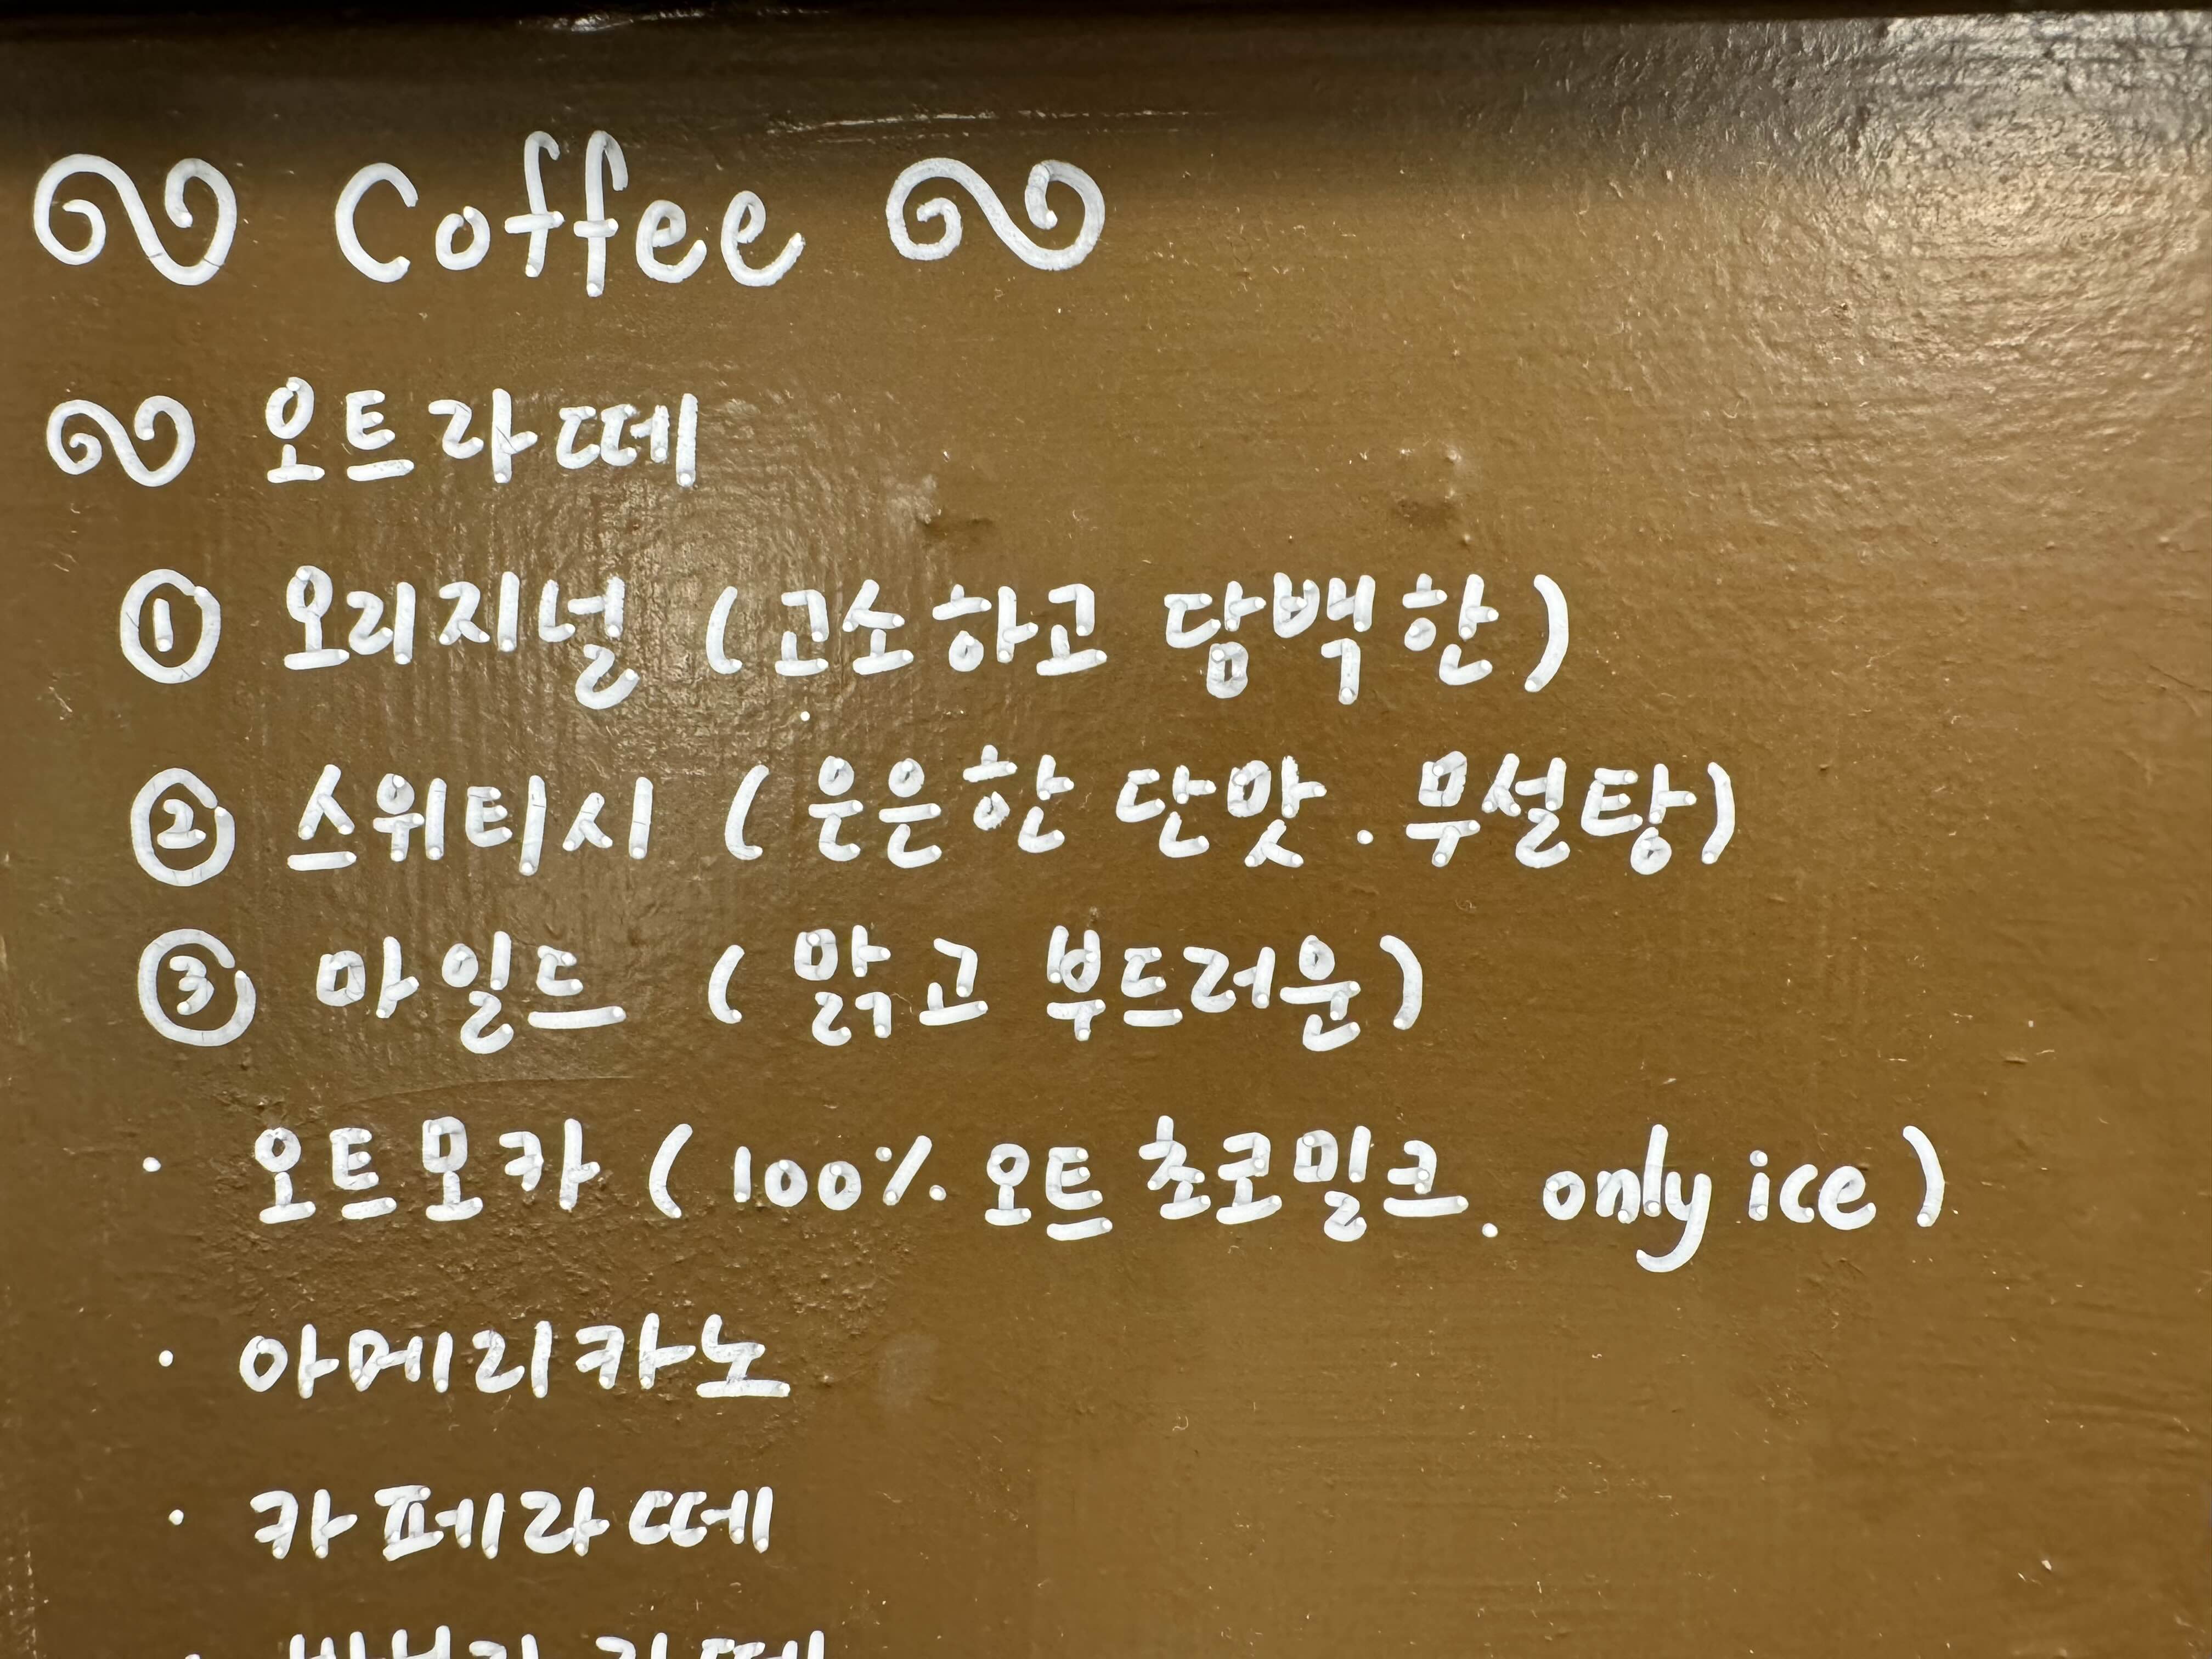 Coffee
오트라떼
① 오리지널 (고소하고 담백한)
② 스위티시 (은은한 단맛. 무설탕)
③ 마일드 (맑고 부드러운)
· 오트모카 (100% 오트 초코밀크. only ice)
· 아메리카노
· 카페라떼